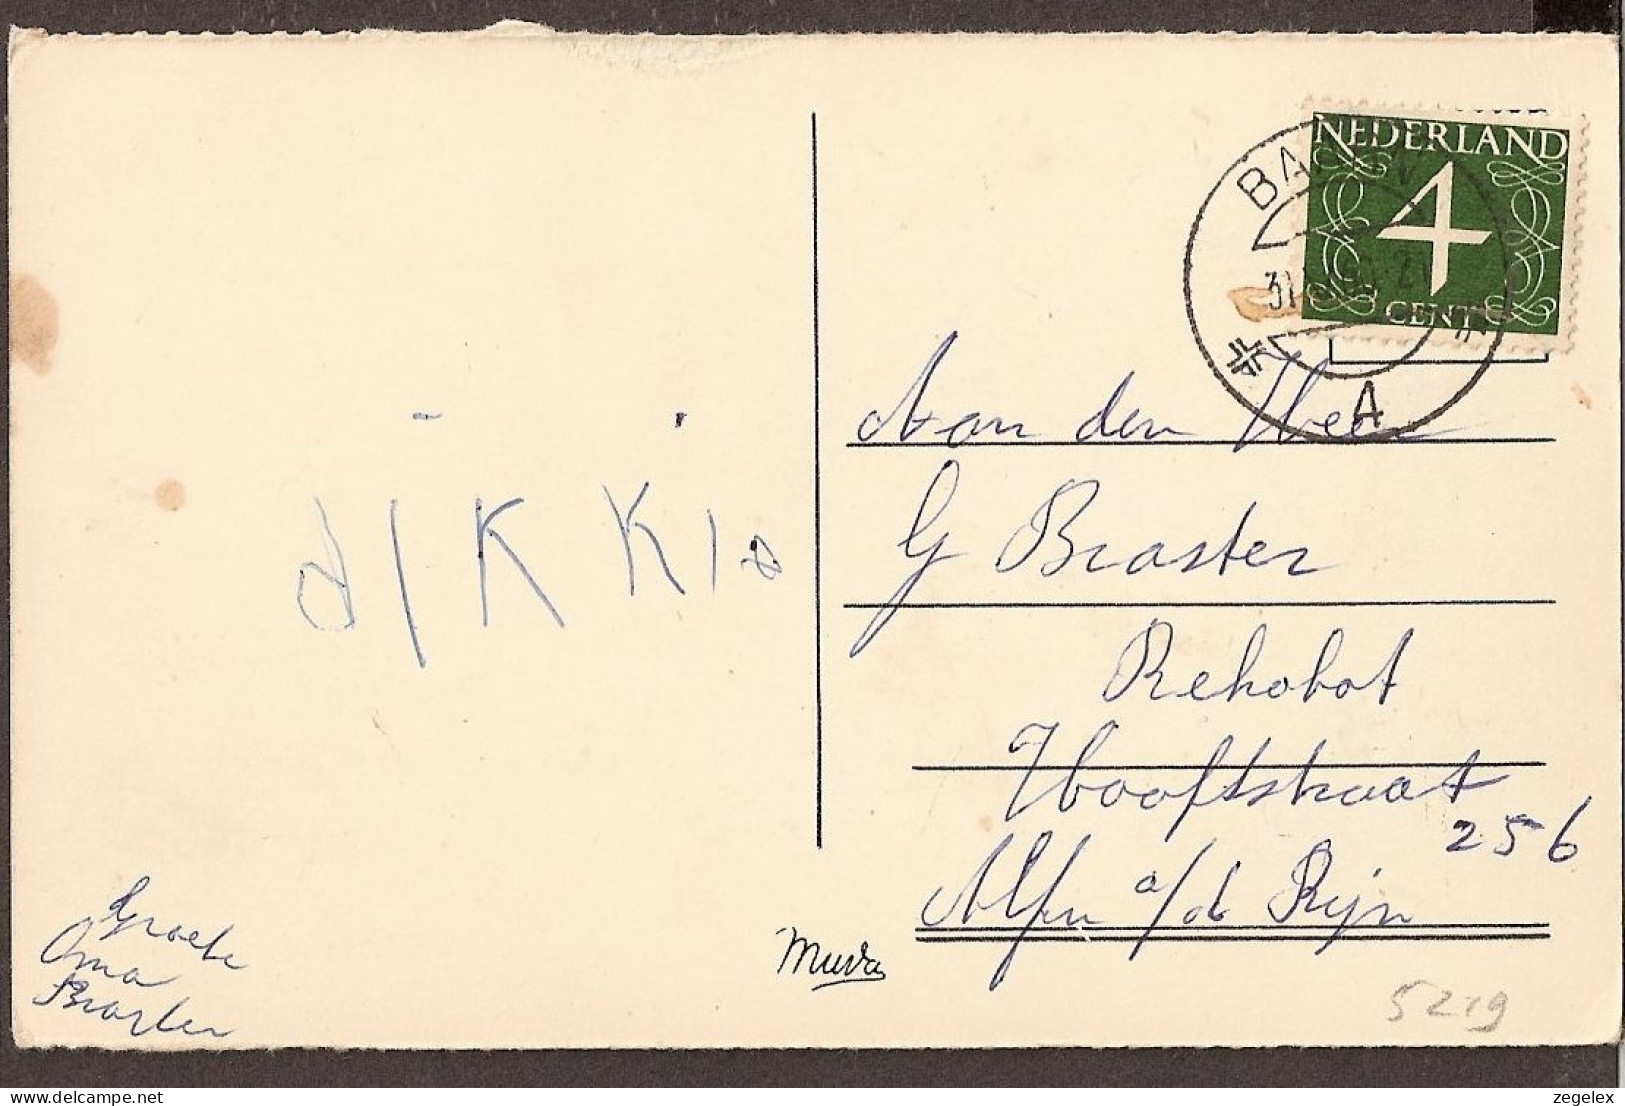 NEDERLAND
4
CENT
A
Aan den Heer
G Braster
Rehobot
Hooftstraat
256
Alfen a/d Rijn
dikkie
Groete
Oma
Braster
Muva
5219
www.delcampe.net
zegelex